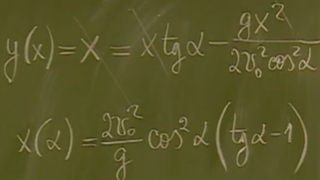 y(x) = x = x tg α − gx² / 2v₀² cos² α
x(α) = 2v₀² / g cos² α (tg α − 1)